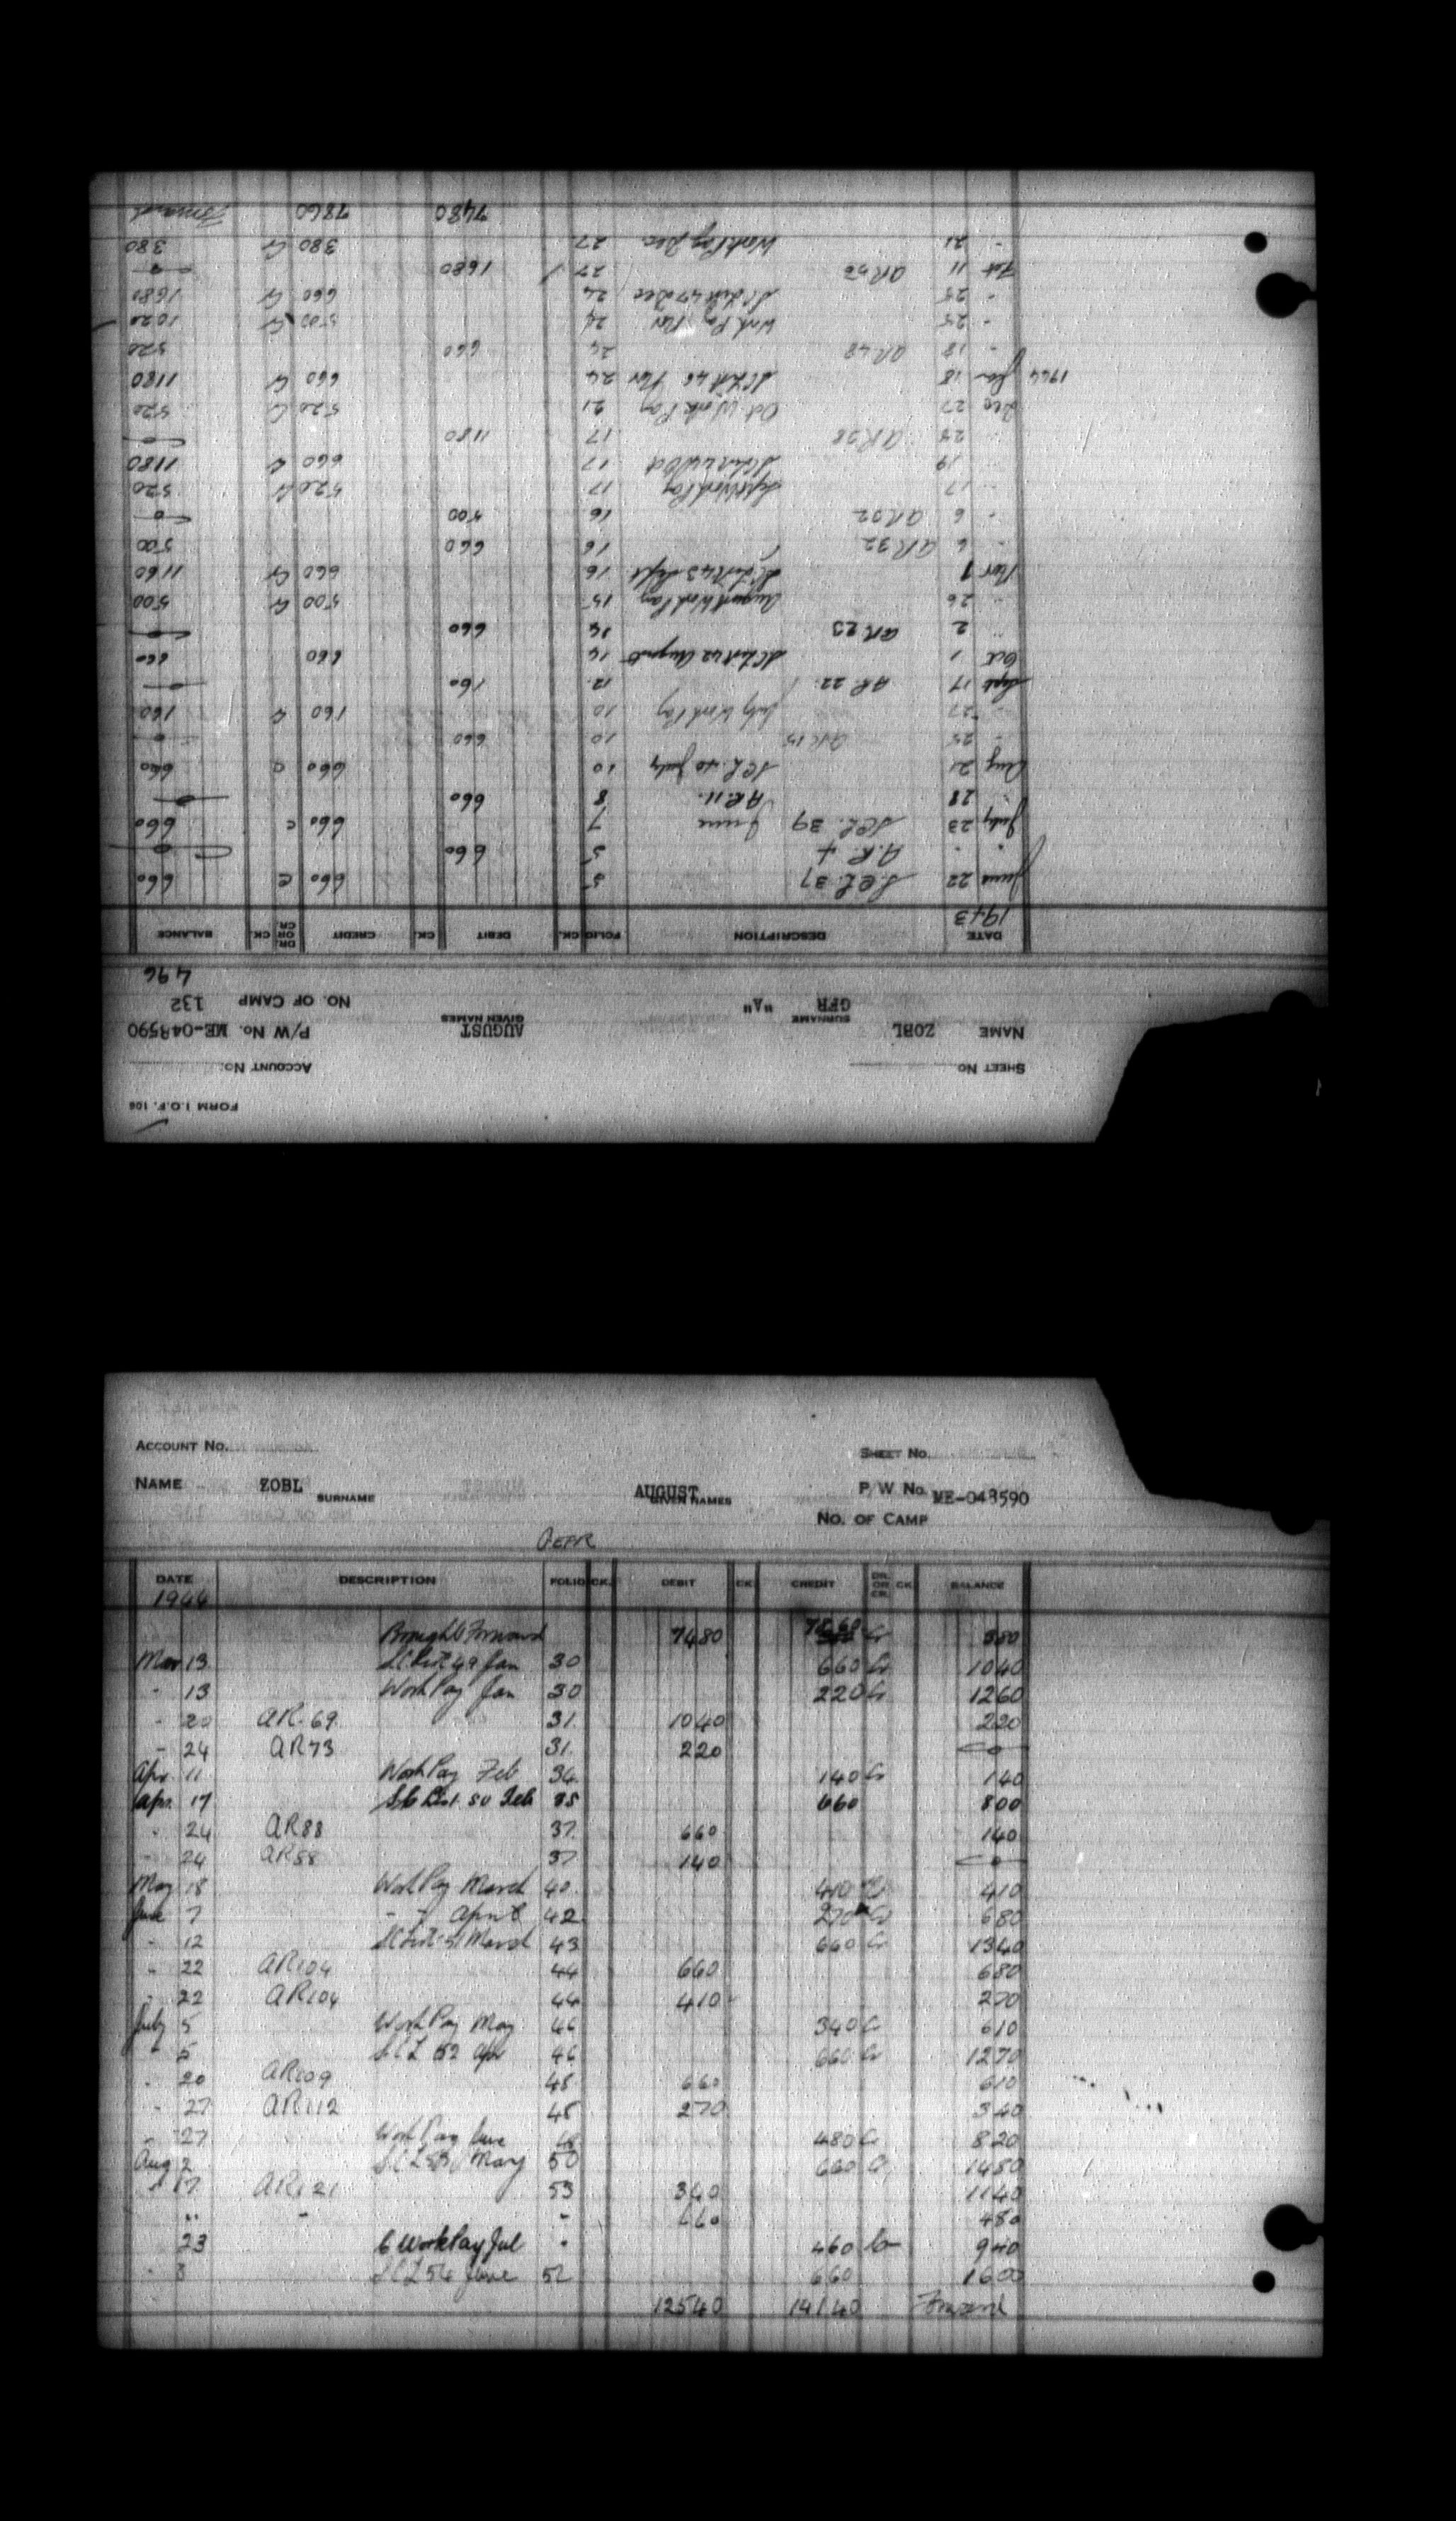 FORM I.O.F. 106
SHEET No. ACCOUNT No.
NAME ZOBL SURNAME AUGUST GIVEN NAMES P/W No. ME-048590
GFR "A" NO. OF CAMP 132
496
DATE DESCRIPTION FOLIO CK. DEBIT CK. CREDIT DR. OR CR. CK. BALANCE
1943
June 22 S.C.L. 37 5 660 C 660
" " A.R. 4 5 660 0
July 23 S.C.L. 39 June 7 660 C 660
" 28 A.R. 11. 8 660 0
Aug 21 S.C.L. 40 July 10 660 C 660
" 25 AR 15 10 660 0
" 27 July Work Pay 10 160 C 160
Sept 17 A.R. 22. 12. 160
Oct 1 SC List 42 August 14 660 660
" 2 AR 25 14 660 0
" 26 August Work Pay 15 500 Cr 500
Nov 1 SC List 43 Sept 16 660 Cr 1160
" 6 AR 32 16 660 500
" 6 AR 32 16 500 0
" 17 Sept Work Pay 17 520 Cr 520
" 19 SC List 44 Oct 17 660 Cr 1180
" 25 AR 38 17 1180 0
Dec 27 Oct. Work Pay 21 520 C 520
1944 Jan 18 SC List 46 Nov 24 660 Cr 1180
" 18 AR 48 24 660 520
" 25 Work Pay Nov 24 500 Cr 1020
" 25 SC List 47 Dec 24 660 Cr 1680
Feb 11 AR 56 27 1680 0
" 21 Work Pay Dec 27 380 Cr 380
7480 7860 Forward
ACCOUNT No. SHEET No.
NAME ZOBL SURNAME AUGUST GIVEN NAMES P/W No. ME-048590
NO. OF CAMP
DATE DESCRIPTION FOLIO CK. DEBIT CK. CREDIT DR. OR CR. CK. BALANCE
1944
Brought Forward 7480 7860 Cr 380
Mar 13 SC List 49 Jan 30 660 Cr 1040
" 13 Work Pay Jan 30 220 Cr 1260
" 20 AR. 69. 31. 1040 220
- 24 AR 73 31. 220 0
Apr. 11 Work Pay Feb 34 140 Cr 140
Apr. 17 SC List. 50 Feb 35 660 800
" 24 AR 88 37. 660 140
" 24 AR 88 37 140 0
May 18 Work Pay March 40. 410 Cr 410
June 7 - " April 42 270 Cr 680
" 12 SC List 51 March 43 660 Cr 1340
" 22 AR 104 44 660 680
" 22 AR 104 44 410 270
July 5 Work Pay May 46 340 Cr 610
" 5 S.C.L 52 Apr 46 660 Cr 1270
" 20 AR 109 48 660 610
" 27 AR 112 48 270 340
" 27 Work Pay June 48 480 Cr 820
Aug 2 S.C.L 53 May 50 660 Cr 1480
" 17 AR 121 53 340 1140
" - - 660 480
23 C Work Pay Jul " 460 Cr 940
" 3 S.C.L 54 June 52 660 1600
12540 14140 Forward